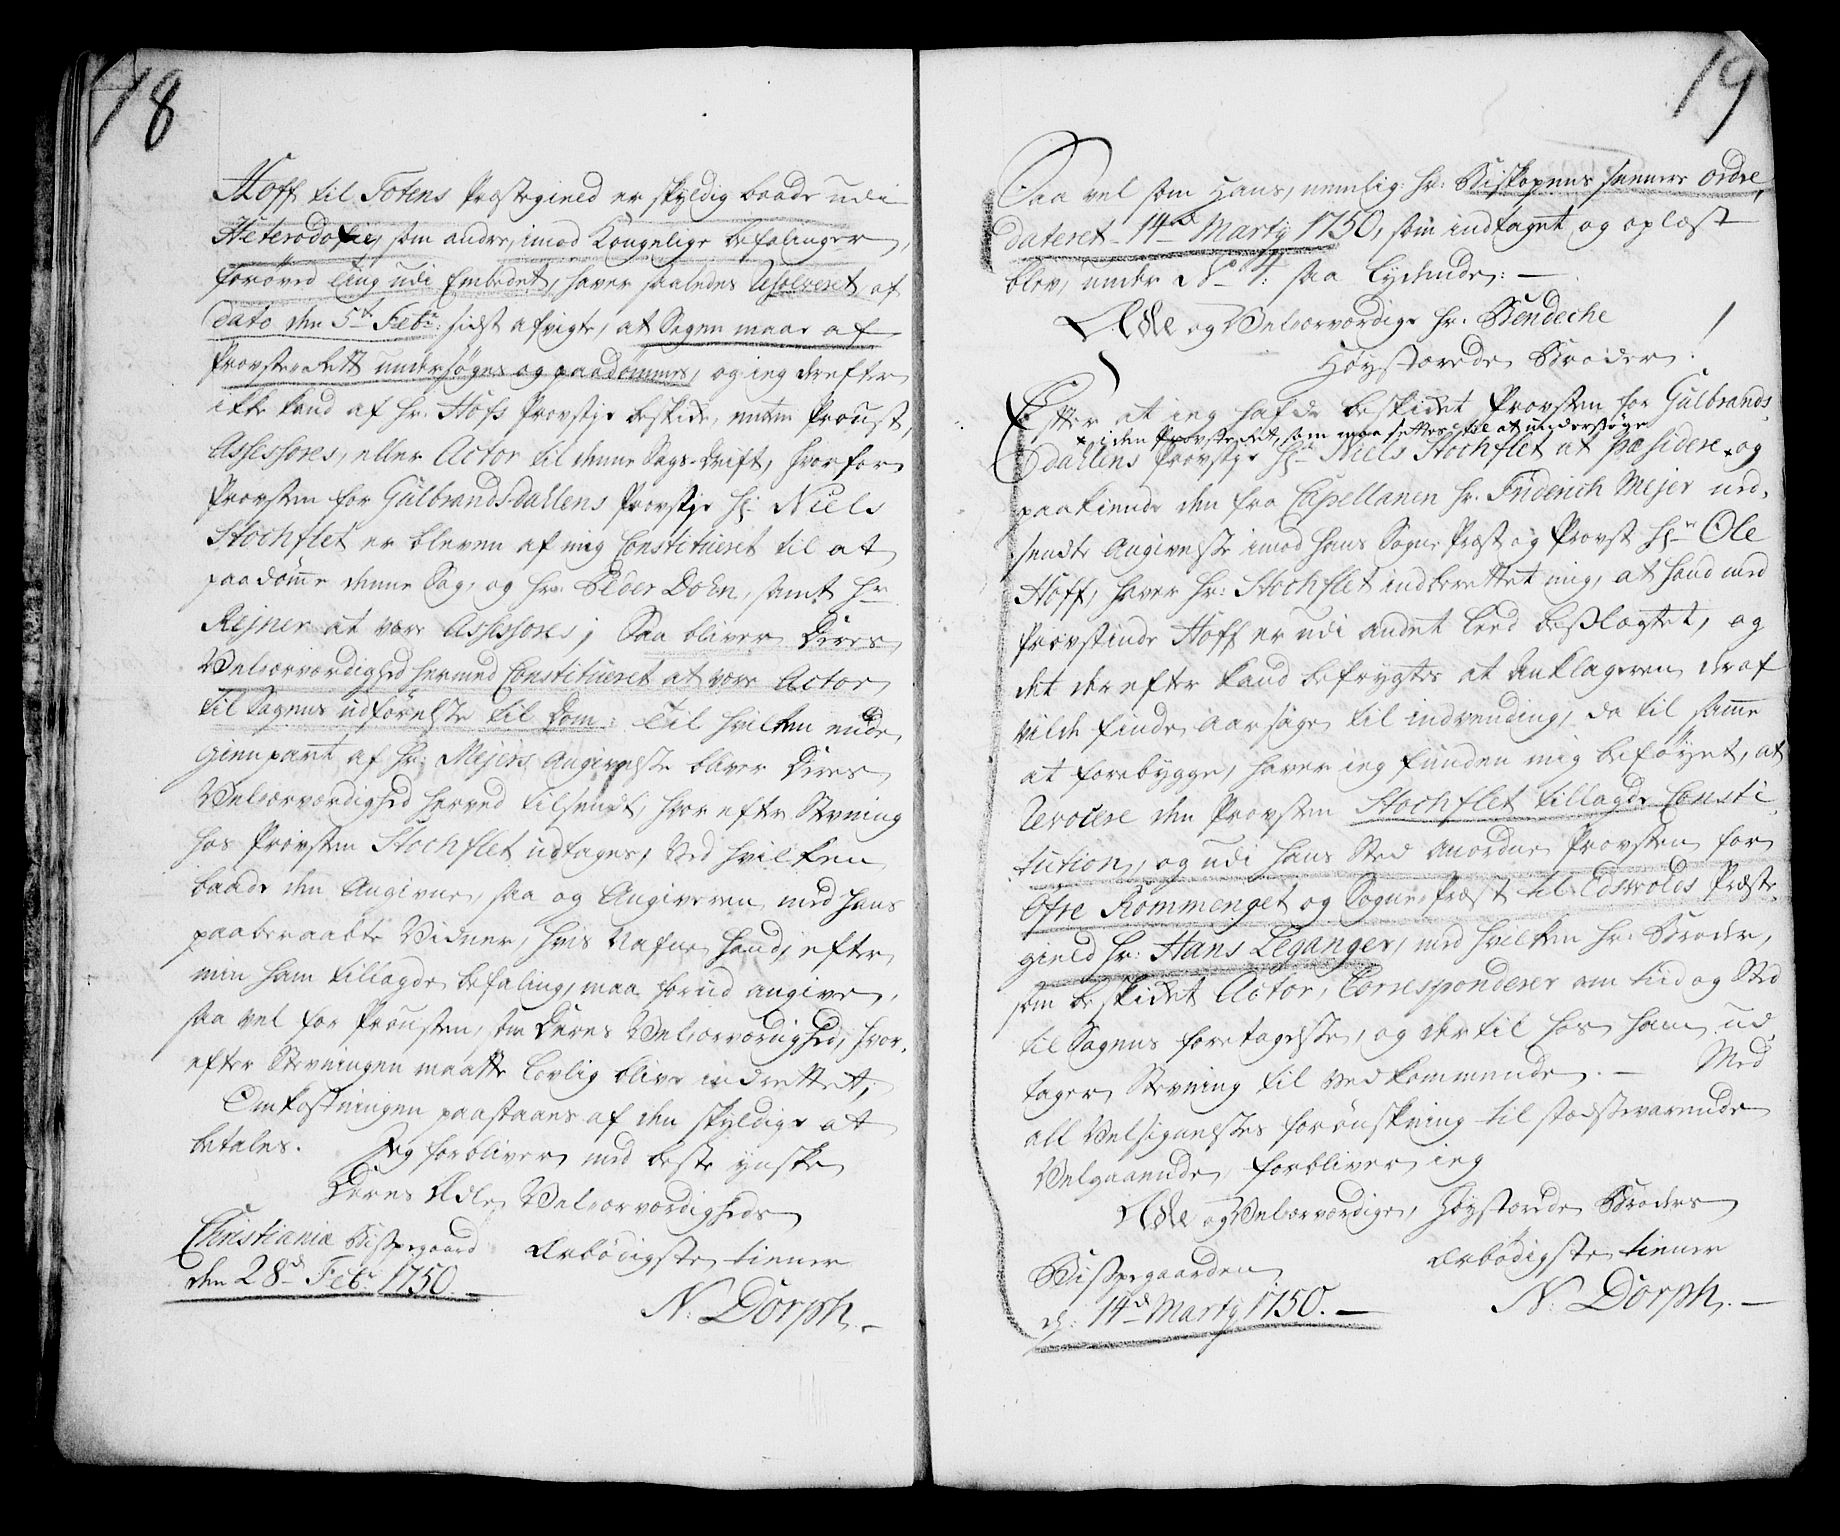 18
Hoff til Totens Præstegield er skyldig baade udi
Heterodoxie, som andre, imod Kongelige befalinger,
forøved ting udi Embedet, haver saaledes Resolveret af
dato den 5te Febr: sidst afvigte, at Sagen maae af
Provste-Rett undersøges og paadømmes, og ieg derefter
ikke kand af Hr. Hofs Provstie beskikke, enten Proust,
Assessores, eller Actor til denne Sags-Drift, hvorfor
Provsten for Gulbrandsdallens Provstje Hr. Niels
Stochflet er bleven af mig Constitueret til at
paadømme denne Sag, og Hr. Peder Doen, samt Hr.
Rejner at være Assessores; Saa bliver Deres
Velærværdighed hermed Constitueret at være Actor
til Sagens udførelse til Dom: Til hvilken ende
Gienpart af Hr. Mejers Angivelse bliver Deres
Velærværdighed herved tilsendt, hvor efter Stevning
hos Provsten Stochflet udtages, ved hvilken
baade den Angivne, saa og Angiveren, med hans
paaberaabte Vidner, hvis Nafne hand, efter
min ham tillagde befaling, maa forud angive,
saa vel for Prousten, som Deres Velærværdighed, hvor-
efter Stevningen maatte lovlig blive indrettet;
Omkostningen paastaaes af den skyldige at
betales. Jeg forbliver med beste ynske
Deres Ædle Velærværdigheds
Christiania Bispegaard ærbødigste tiener
den 28de Febr. 1750. N: Dorph.
19
Saa vel som Hans, nemlig: Hr: Biskopens senere ordre
dateret 14de Martÿ 1750, som indtaget og oplæst
blev, under No 4: saa lydende: —
Ædle og Velærværdige Hr. Bendeche
Høystærede Broder!
Efter at ieg hafde beskikket Provsten for Gulbrands-
x i den Provsteret, som maa settes til at undersøge
dallens Provstje Hr. Niels Stochflet at præsidere x og
paakiende den fra Capellanen Hr. Friderich Mejer ind-
sendte Angivelse imod hans Sogne Præst og Provst Hr. Ole
Hoff, haver Hr: Stochflet indberettet mig, at hand med
Provstinde Hoff er udi andet leed besvogret, og
det derefter kand befrygtes at Anklageren deraf
vilde finde aarsage til indvending, da til samme
at forebygge, haver ieg funden mig beføyet, at
Revocere den Provsten Stochflet tillagde Consti-
tution, og udi hans Sted anordne Provsten for
Øfre Rommeriget og Sogne-Præst til Edsvolds Præste-
gield Hr: Hans Leganger, med hvilken Hr. Broder,
som beskikket Actor, Corresponderer om tiid og Sted
til Sagens foretagelse, og dertil hos ham ud-
tager Stevning til vedkommende. — Med
all Velsignelses forønskning til stedsevarende
Velgaaende, forbliver ieg
Ædle og Velærværdige, Høystærede Broders
Bispegaarden ærbødigste tiener
d: 14de Martÿ 1750. — N: Dorph. —